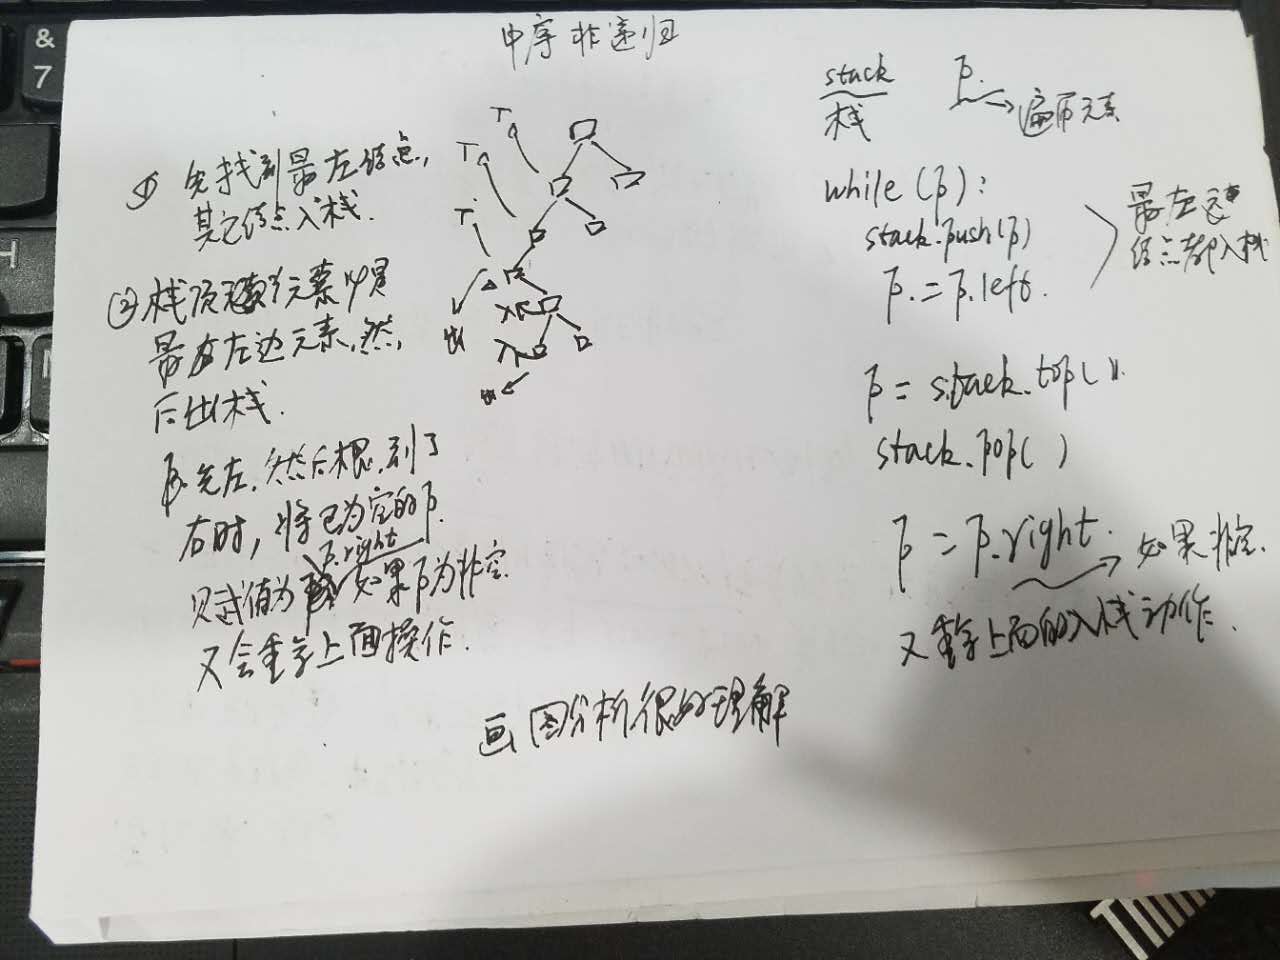 中序非递归
① 先找到最左结点,
其它结点入栈.
②栈顶元素
最左边元素,然
后出栈.
p.先左.然后根.到了
右时,将已为空的p.
p.right
赋值为 如果p为非空.
又会重复上面操作.
T
T
T
出
入
入
出
stack
栈
p.
遍历元素
while(p):
stack.push(p)
p.=p.left.
最左边
结点都入栈
p=stack.top()
stack.pop()
p=p.right.
如果非空.
又重复上面的入栈动作.
画图分析很好理解
&
7
H